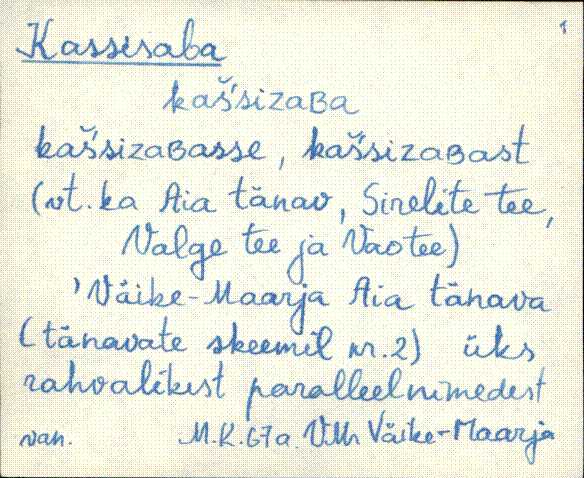 1
Kassisaba
kaš'sizaBa
kaš'sizaBasse, kaš'sizaBast
(vt. ka Aia tänav, Sirelite tee,
Valge tee ja Vao tee)
'Väike-Maarja Aia tänava
(tänavate skeemil nr. 2) üks
rahvalikest paralleelnimedest
van. M.K. 67a. VMr Väike-Maarja